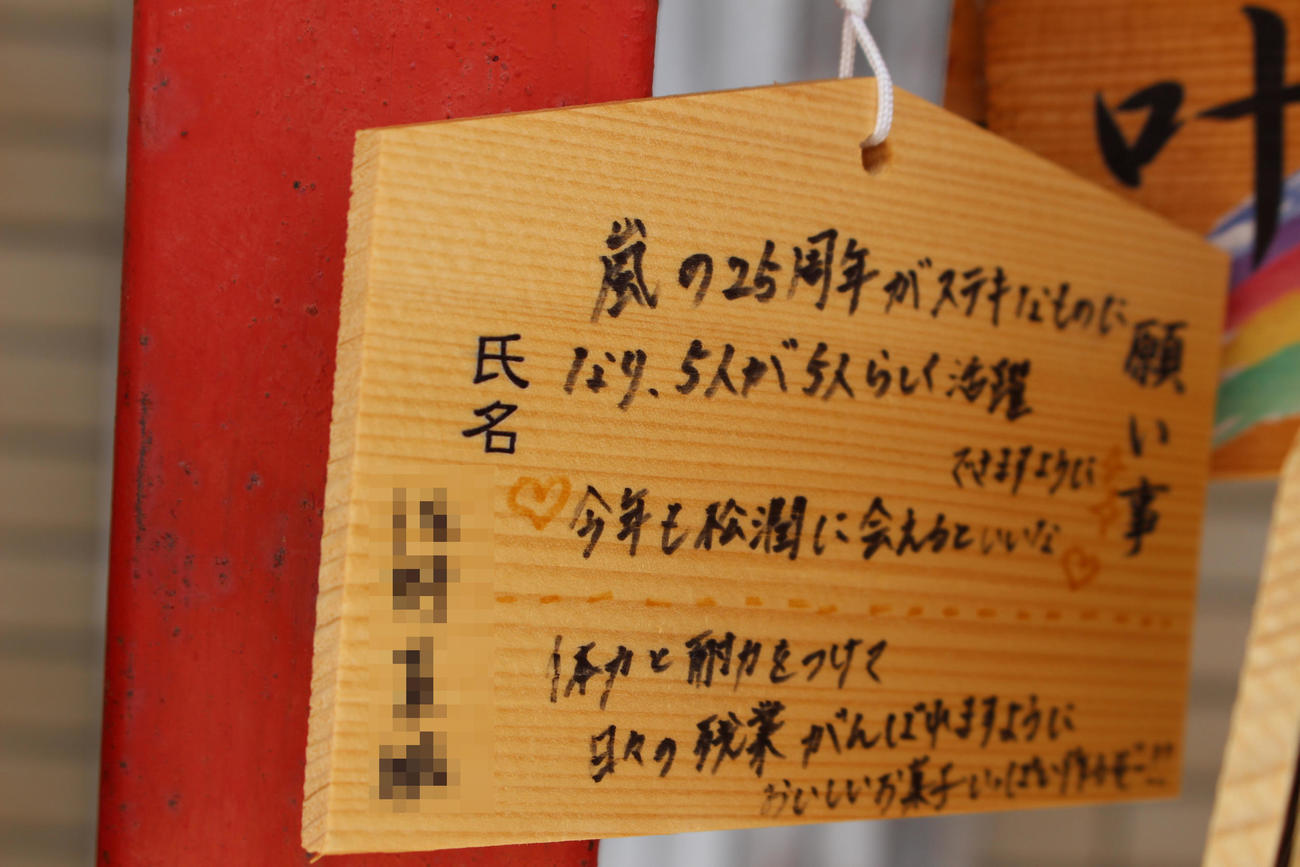 願い事
嵐の25周年がステキなものに
なり、5人が5人らしく活躍
できますように
今年も松潤に会えるといいな
体力と耐力をつけて
日々の残業がんばれますように
おいしいお菓子いっぱい
氏名
叶